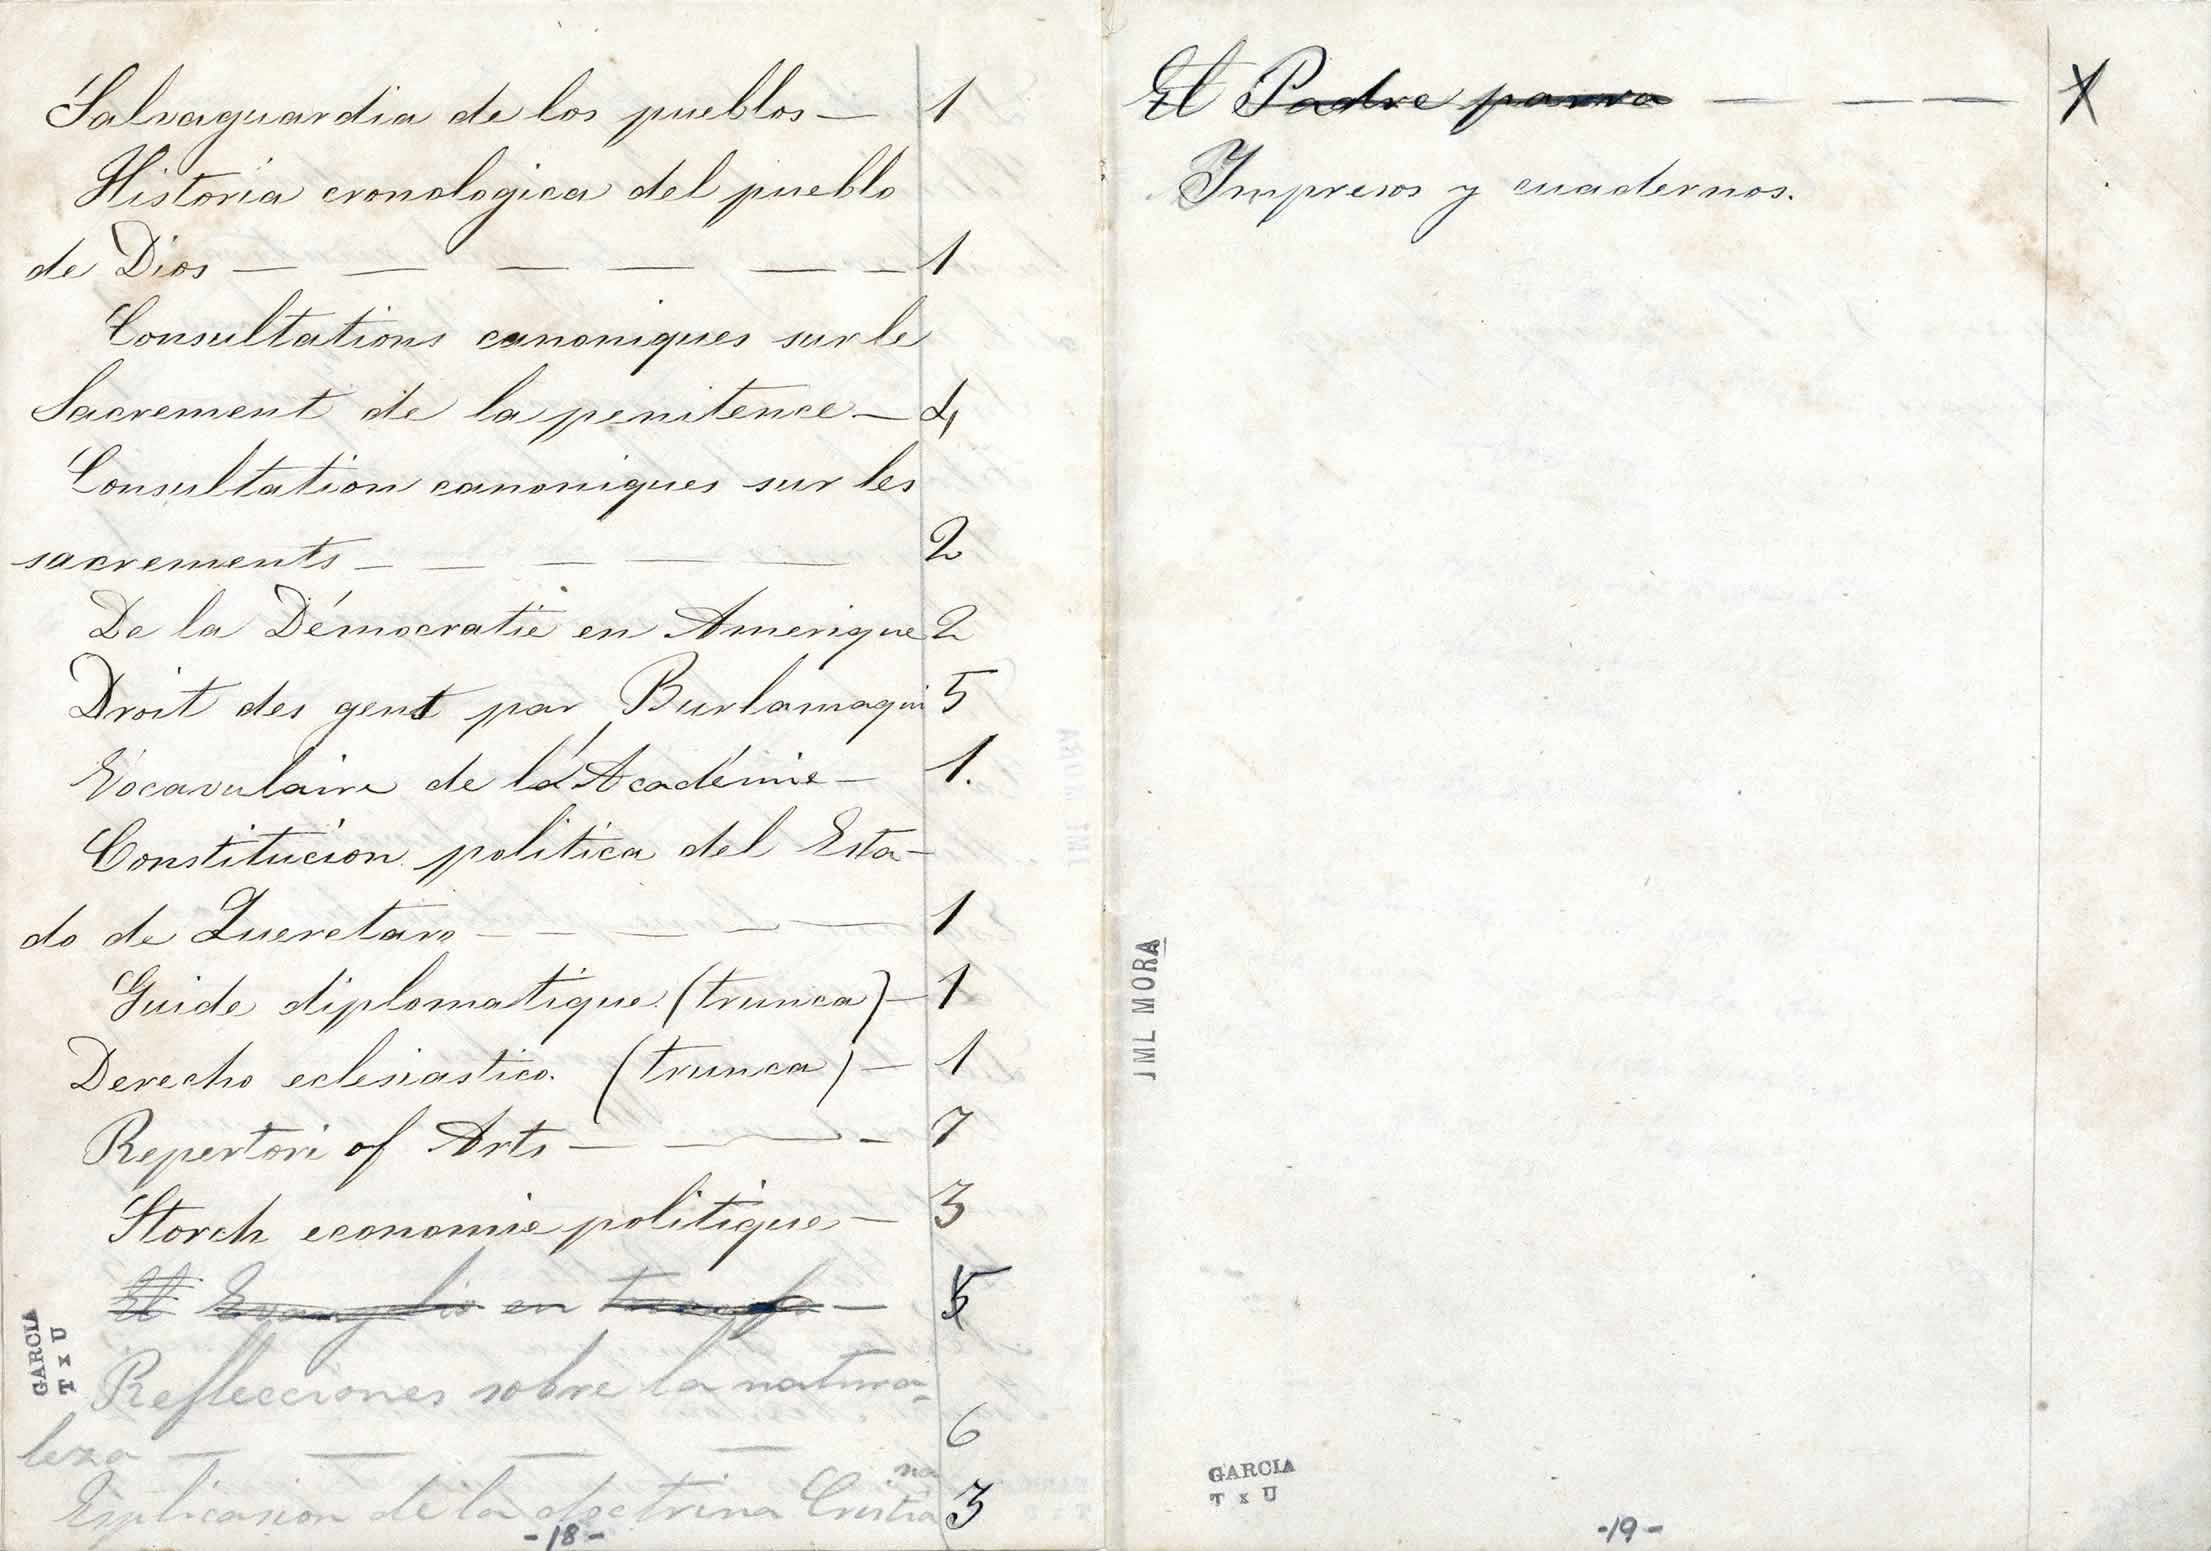 Salvaguardia de los pueblos — 1
Historia cronologica del pueblo
de Dios — — — — — — 1
Consultations canoniques sur le
Sacrement de la penitence — 4
Consultation canoniques sur les
sacrements — — — — — 2
De la Démocratie en Amerique 2
Droit des gent par Burlamaqui 5
Vocavulaire de la Académie — 1.
Constitucion politica del Esta-
do de Queretaro — — — — — 1
Guide diplomatique (trunca) — 1
Derecho eclesiastico. (trunca) — 1
Repertori of Arts — — — — 7
Storch economie politique — 3
El Evangelio en triunfo — 5
Reflecciones sobre la natura-
leza — — — — 6
Esplicasion de la doctrina Cristiana 3
GARCIA
T x U
-18-
El Padre parra — — — 1
Impresos y cuadernos.
JML MORA
GARCIA
T x U
-19-